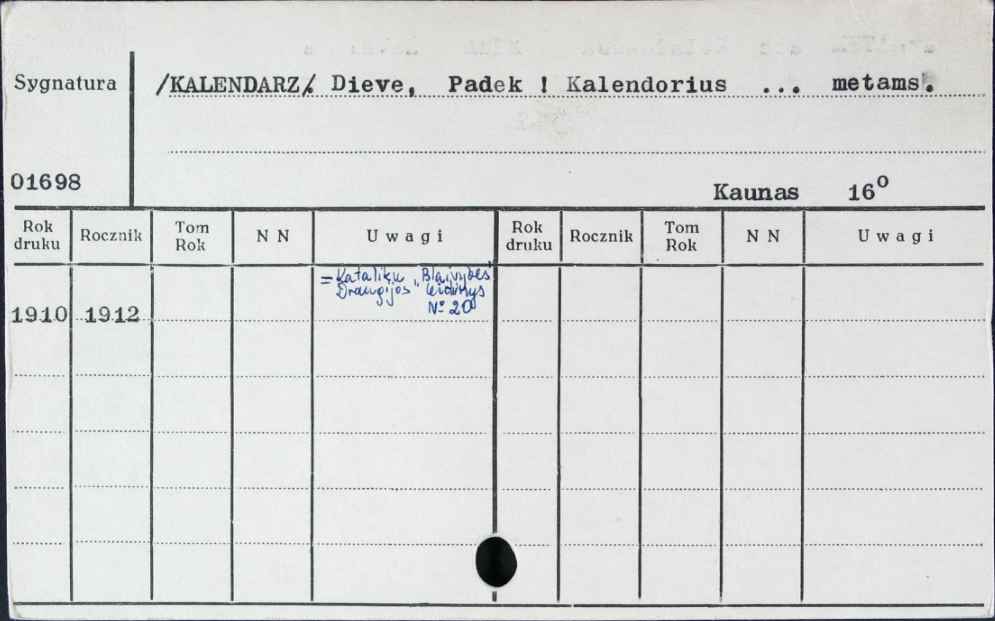 Sygnatura
/KALENDARZ/. Dieve, Padek ! Kalendorius ... metams.
01698
Kaunas 16º
Rok druku Rocznik Tom Rok N N Uwagi Rok druku Rocznik Tom Rok N N Uwagi
= Kataliku „Blaivybes"
Draugijos leidinys
1910 1912 Nº 20